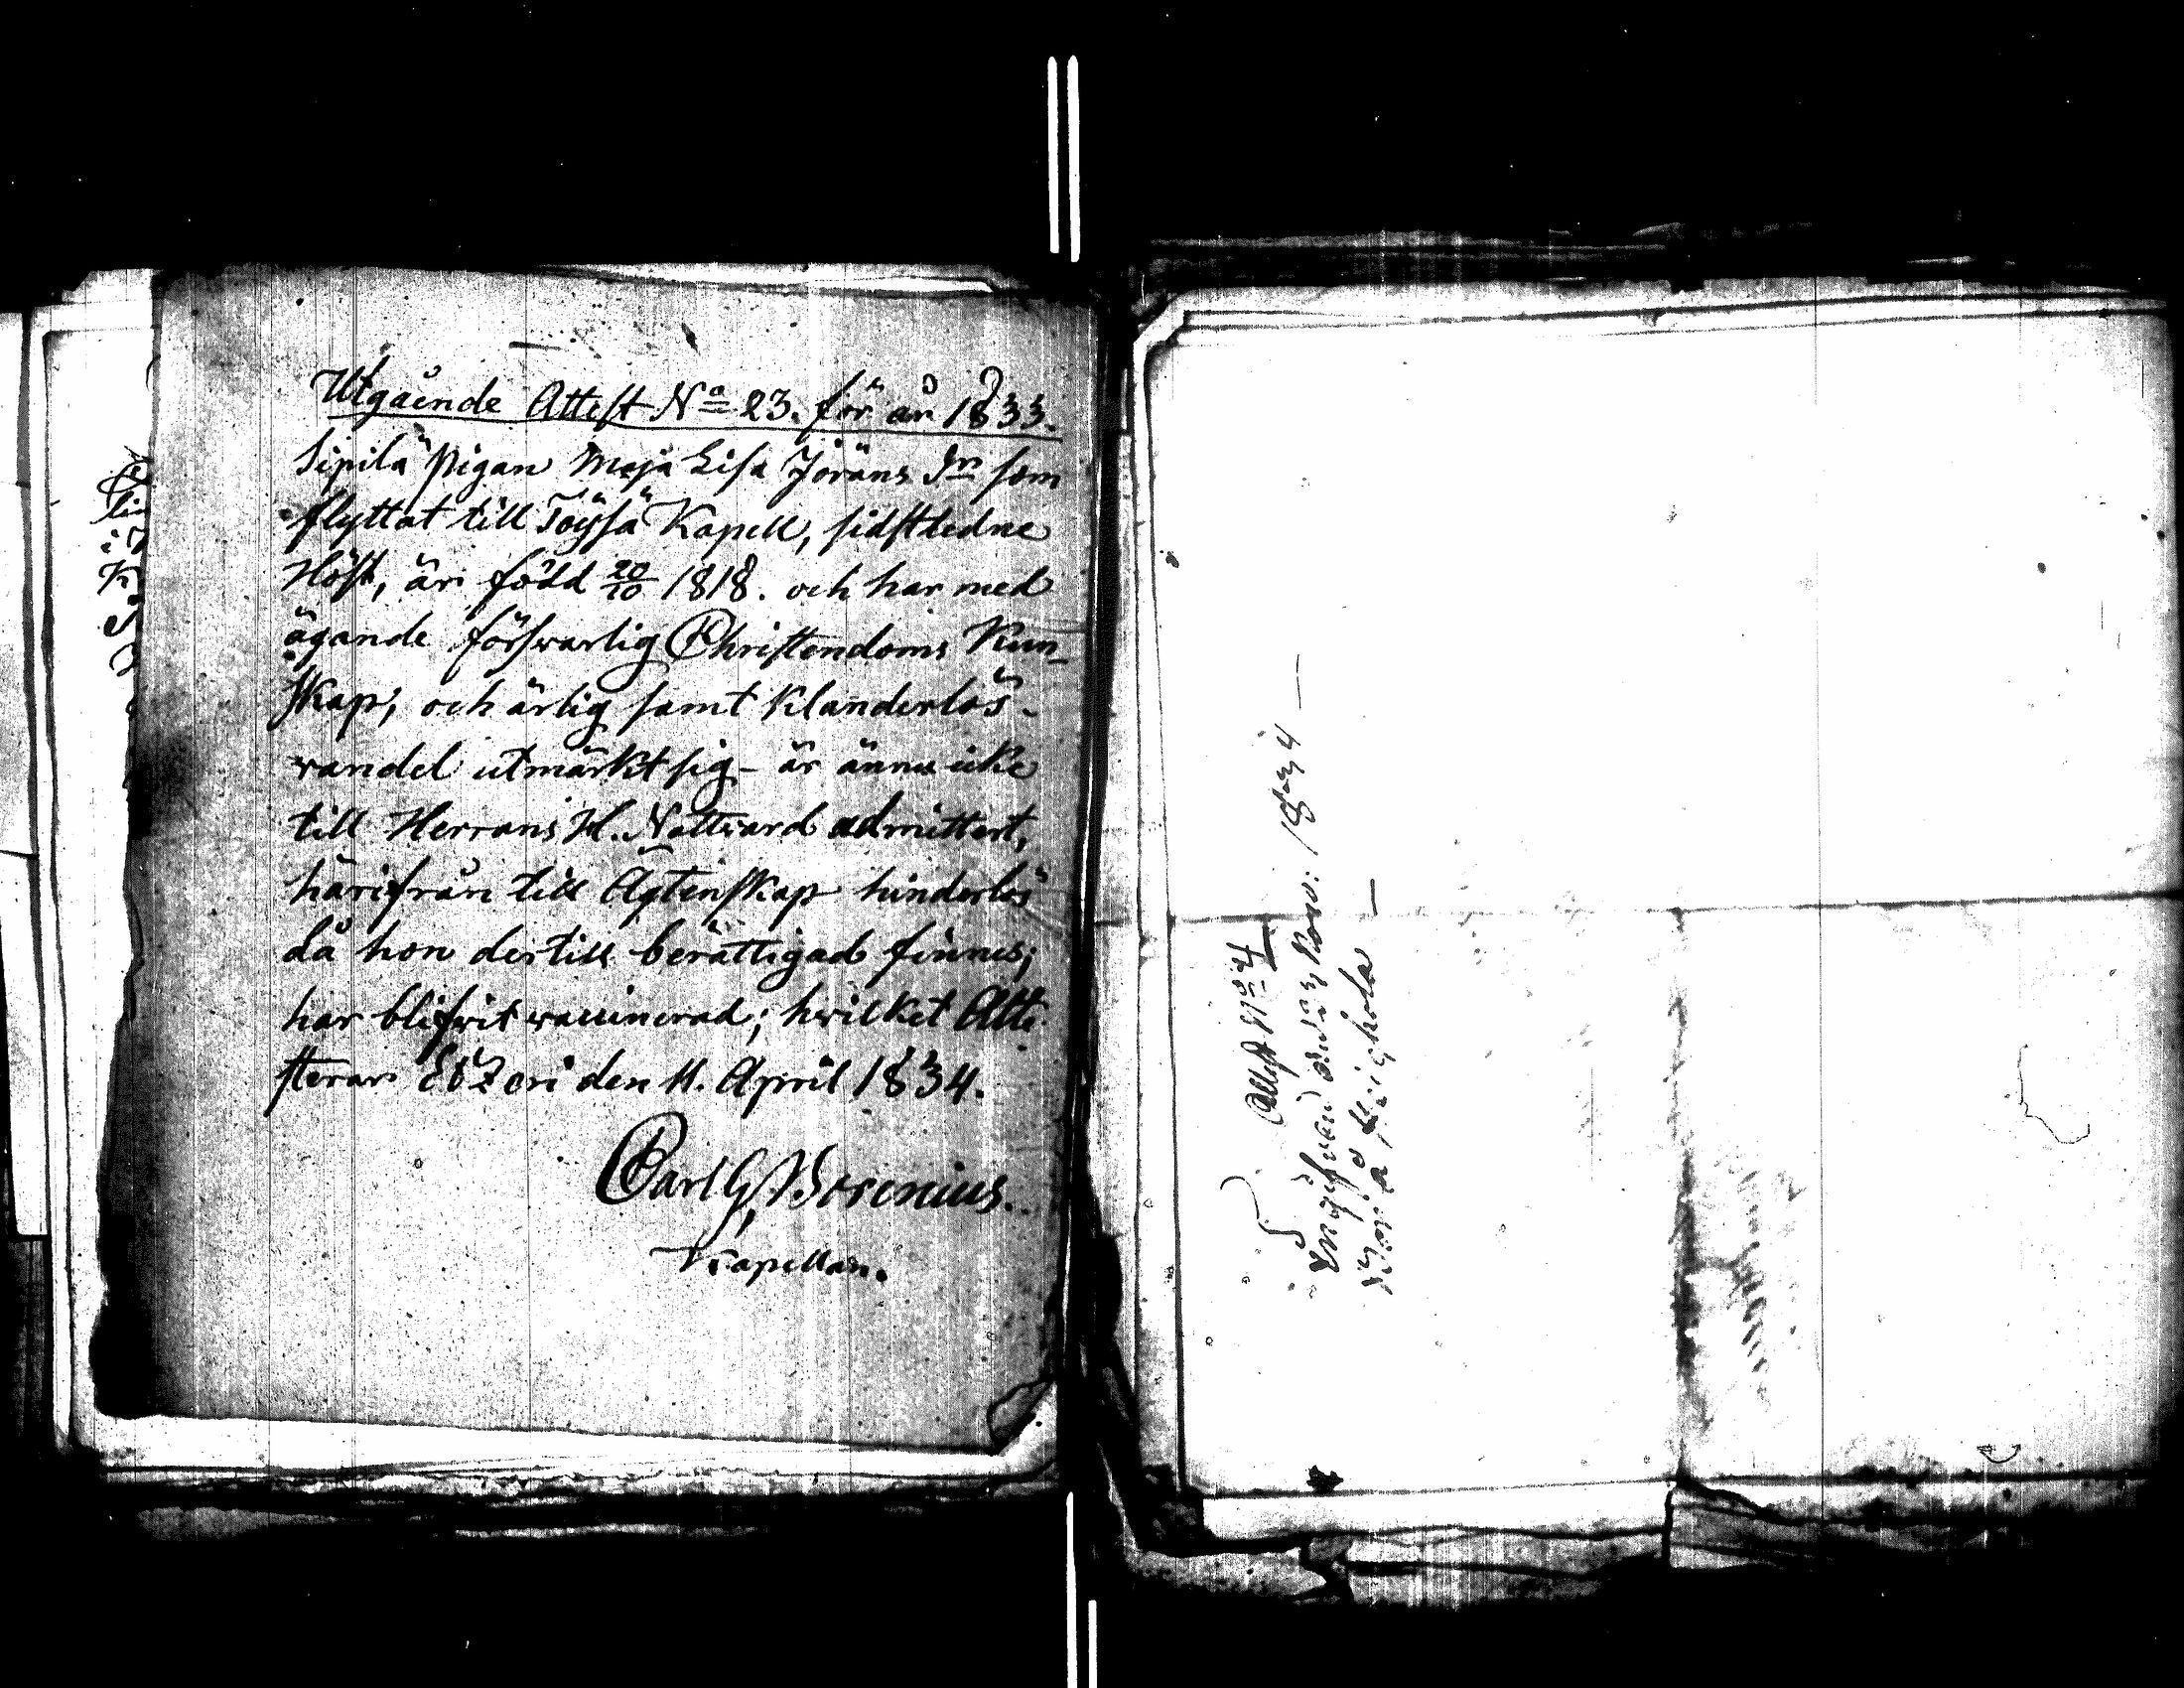 Utgående Attest No 23. för år 1833.
Sipilä Pigan Maja Lisa Jörans Dr som
flyttat till Töysä Kapell, sidstledne
Höst, är född 20/10 1818. och har med
ägande försvarlig Christendoms Kun-
skap, och ärlig samt Klanderlös
vandel utmärkt sig - är ännu icke
till Herrans H. Nattvard admittert,
härifrån till Ägtenskap hinderlös
då hon dertill berättigad finnes;
har blifvit vaccinerad; hvilket Atte-
sterar Etzeri den 11. April 1834.
Carl G. Borenius.
Kapellan.
Attest No 4
1834